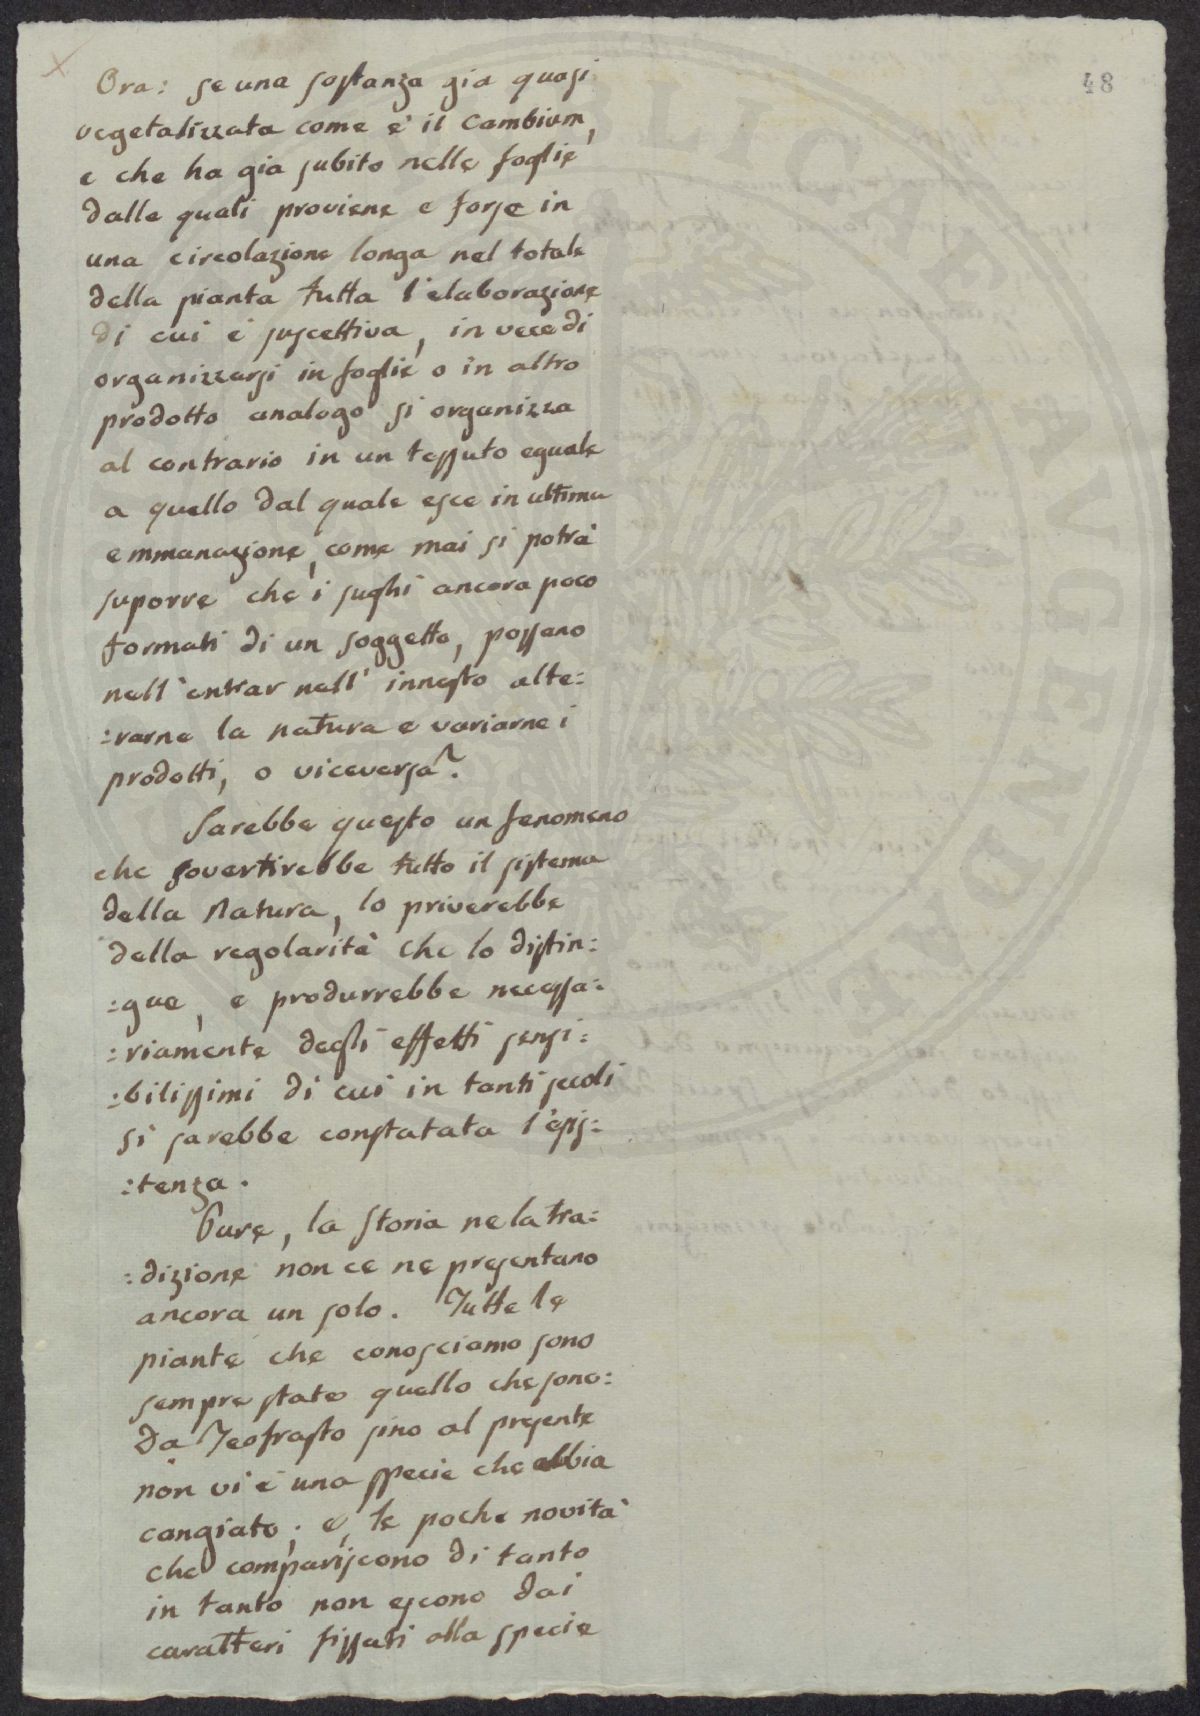 48
Ora: se una sostanza gia quasi
vegetalizzata come e' il Cambium,
e che ha gia subito nelle foglie
dalle quali proviene e forse in
una circolazione longa nel totale
della pianta tutta l'elaborazione
di cui è suscettiva, in vece di
organizzarsi in foglie o in altro
prodotto analogo si organizza
al contrario in un tessuto eguale
a quello dal quale esce in ultima
emmanazione, come mai si potrà
suporre che i sughi ancora poco
formati di un soggetto, possano
nell'entrar nell'innesto alte:
:rarne la natura e variarne i
prodotti, o viceversa?.
Sarebbe questo un fenomeno
che sovertirebbe tutto il sistema
della Natura, lo priverebbe
della regolarità che lo distin:
:gue, e produrrebbe necessa:
:riamente degli effetti sensi:
:bilissimi di cui in tanti secoli
si sarebbe constatata l'esis:
:tenza.
Pure, la storia ne la tra:
:dizione non ce ne presentano
ancora un solo. Tutte le
piante che conosciamo sono
sempre state quello che sono:
Da Teofrasto sino al presente
non vi è una specie che abbia
cangiato; e, le poche novità
che compariscono di tanto
in tanto non escono dai
caratteri fissati alla specie